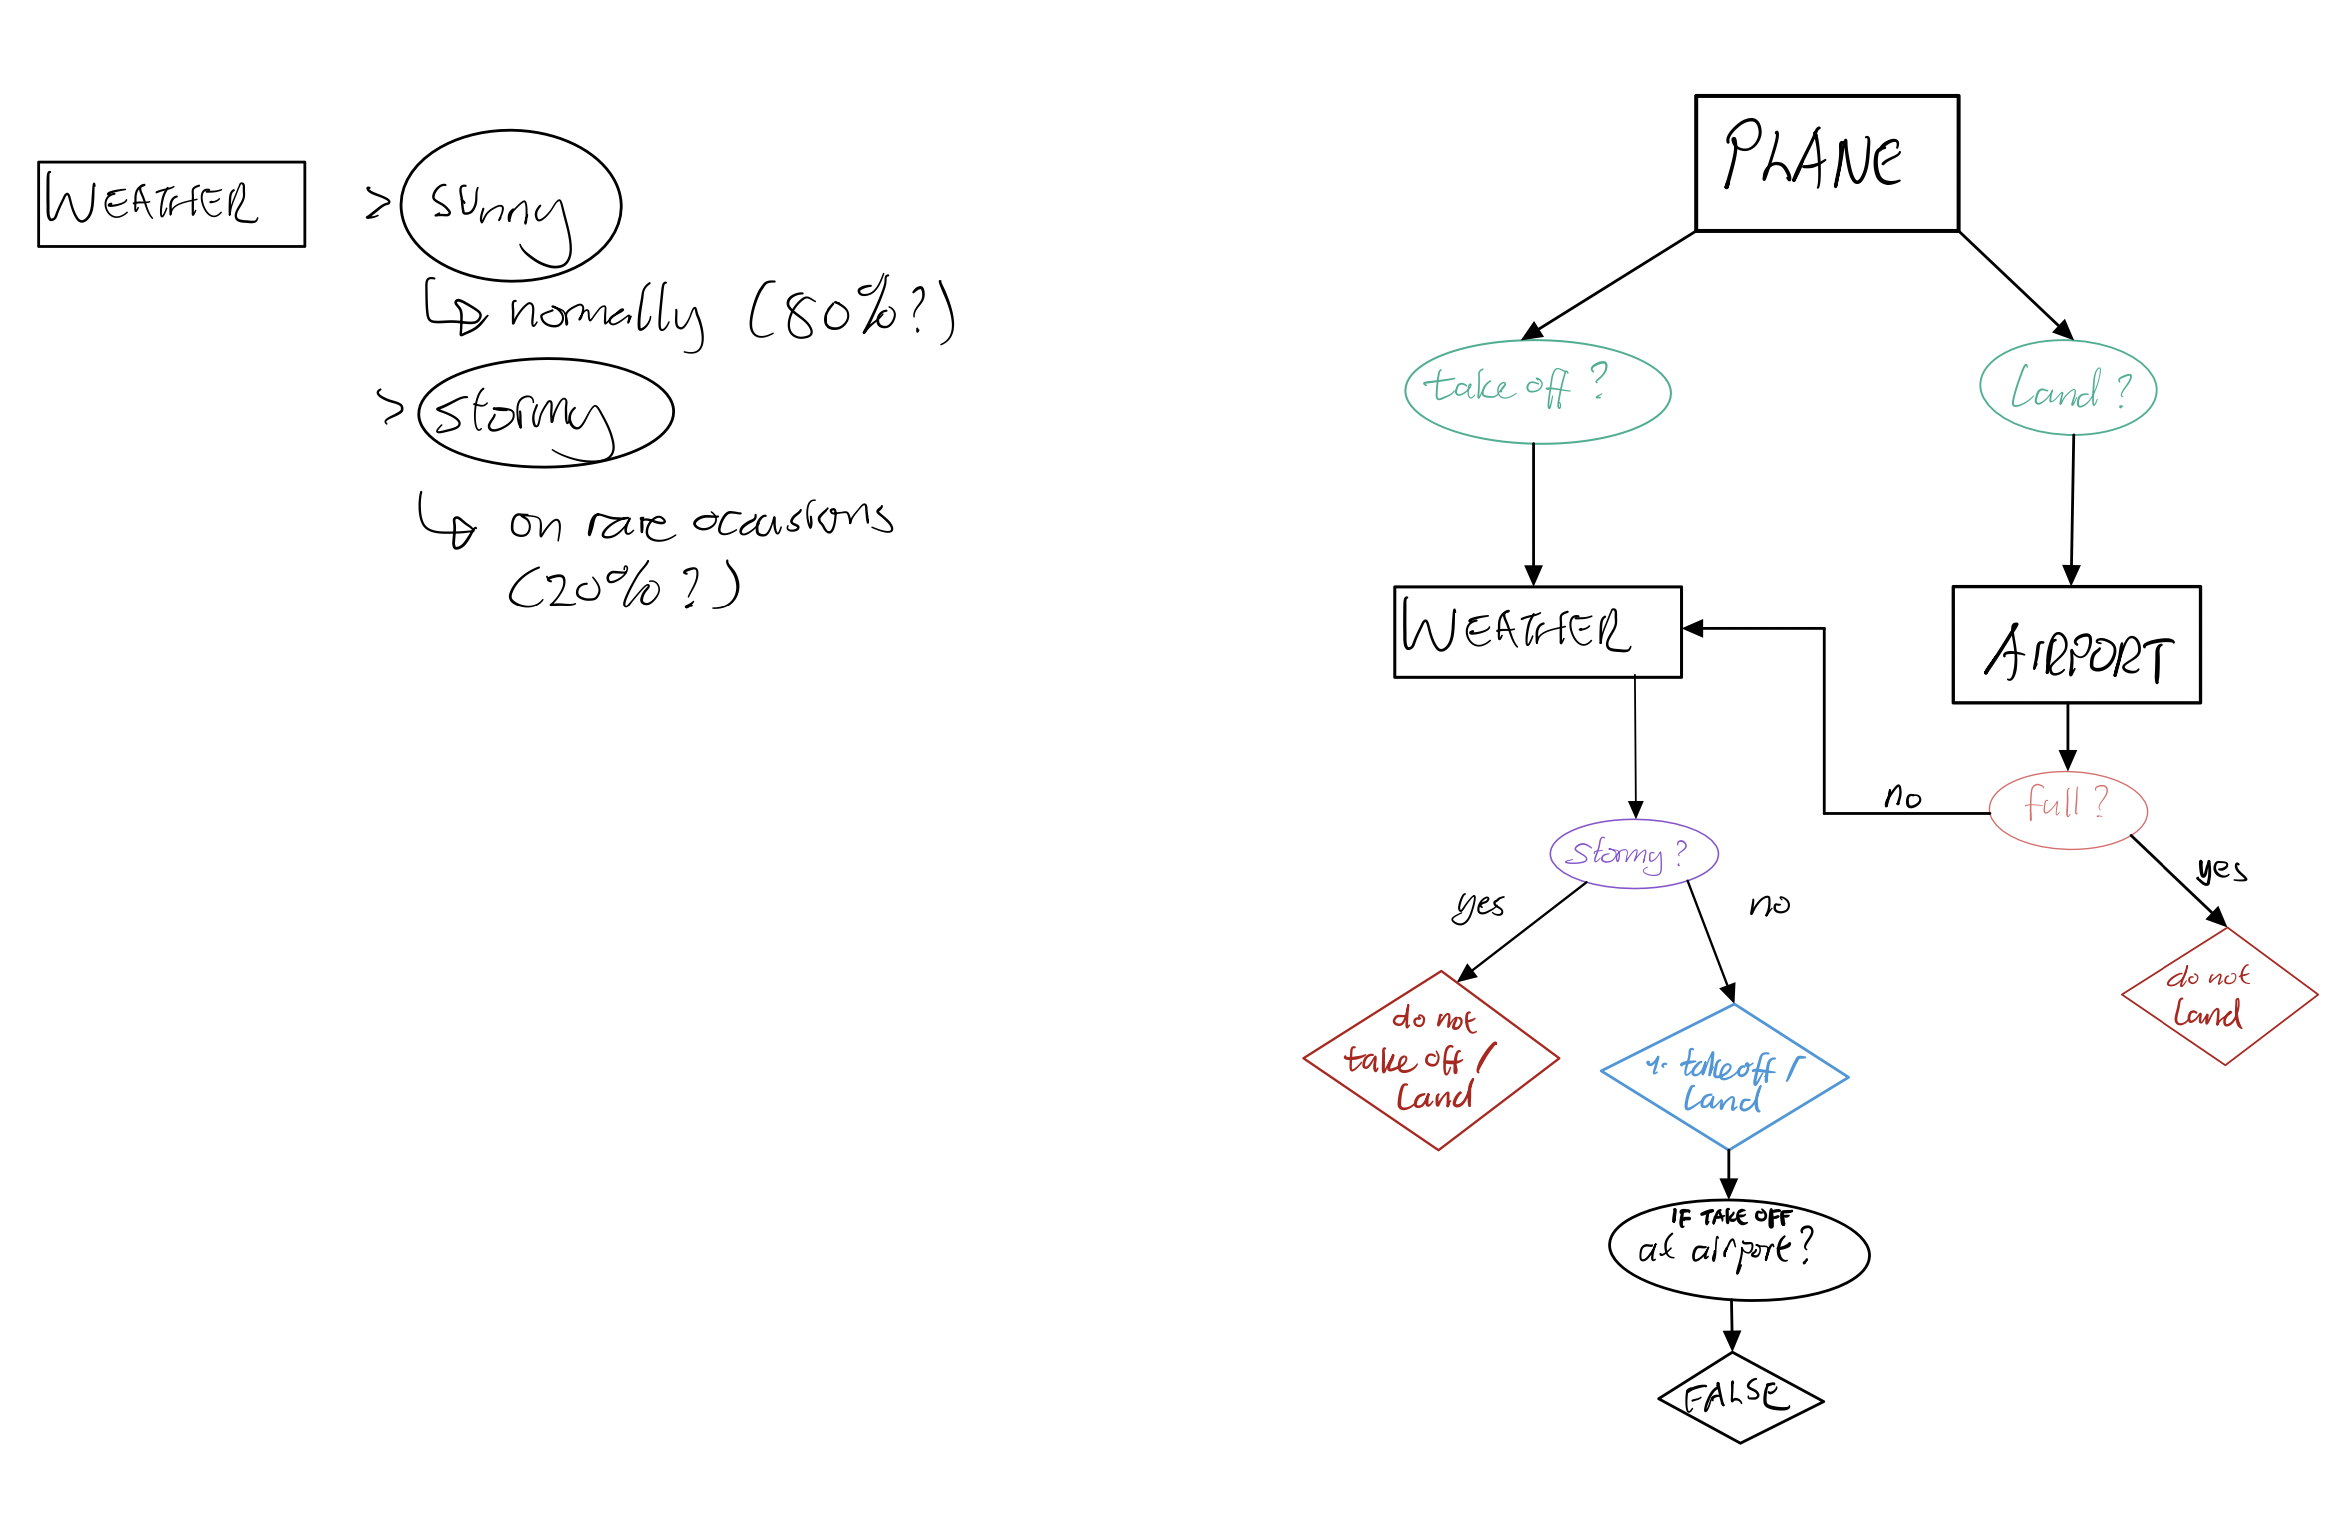 WEATHER
> sunny
normally (80%?)
> stormy
on rare occasions
(20%?)
PLANE
take off?
Land?
WEATHER
AIRPORT
full?
no
yes
do not
Land
stormy?
yes
no
do not
take off /
Land
takeoff /
Land
IF TAKE OFF
at airport?
FALSE